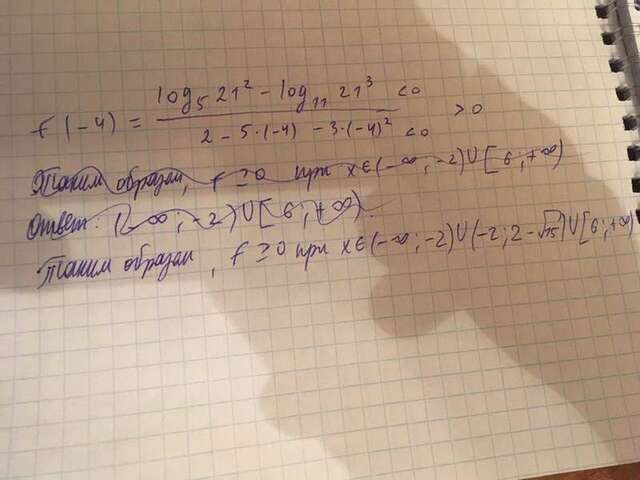 f(-4) = (log₅ 21² - log₁₁ 21³ <0) / (2 - 5·(-4) - 3·(-4)² <0) > 0
Таким образом, f ≥ 0 при x∈(-∞; -2)∪[6; +∞)
Ответ: (-∞; -2)∪[6; +∞).
Таким образом, f ≥ 0 при x∈(-∞; -2)∪(-2; 2-√15)∪[6; +∞)